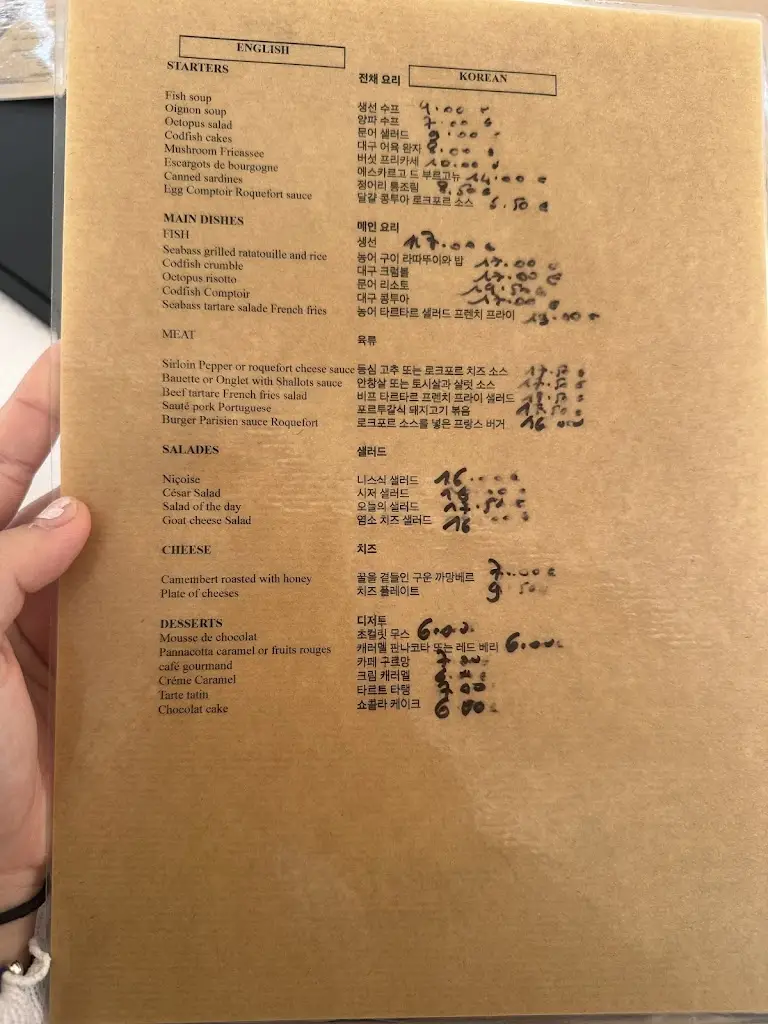 ENGLISH
KOREAN
STARTERS 전채 요리
Fish soup 생선 수프 9.00
Oignon soup 양파 수프 7.00
Octopus salad 문어 샐러드 9.00
Codfish cakes 대구 어육 완자 8.00
Mushroom Fricassee 버섯 프리카세 10.00
Escargots de bourgogne 에스카르고 드 부르고뉴 14.00
Canned sardines 정어리 통조림 8.50
Egg Comptoir Roquefort sauce 달걀 콩투아 로크포르 소스 6.50
MAIN DISHES 메인 요리
FISH 생선 17.00
Seabass grilled ratatouille and rice 농어 구이 라따뚜이와 밥 17.00
Codfish crumble 대구 크럼블 17.00
Octopus risotto 문어 리소토 19.50
Codfish Comptoir 대구 콩투아 17.00
Seabass tartare salade French fries 농어 타르타르 샐러드 프렌치 프라이
MEAT 육류
Sirloin Pepper or roquefort cheese sauce 등심 고추 또는 로크포르 치즈 소스 17.50
Bauette or Onglet with Shallots sauce 안창살 또는 토시살과 샬럿 소스 17.50
Beef tartare French fries salad 비프 타르타르 프렌치 프라이 샐러드
Sauté pork Portuguese 포르투갈식 돼지고기 볶음 17.50
Burger Parisien sauce Roquefort 로크포르 소스를 넣은 프랑스 버거 16
SALADES 샐러드
Niçoise 니스식 샐러드 16
César Salad 시저 샐러드
Salad of the day 오늘의 샐러드 17.50
Goat cheese Salad 염소 치즈 샐러드 16
CHEESE 치즈
Camembert roasted with honey 꿀을 곁들인 구운 까망베르 7.00
Plate of cheeses 치즈 플레이트 9.50
DESSERTS 디저트
Mousse de chocolat 초컬릿 무스 6.00
Pannacotta caramel or fruits rouges 캐러멜 판나코타 또는 레드 베리 6.00
café gourmand 카페 구르망
Créme Caramel 크림 캐러멜
Tarte tatin 타르트 타탱 7.00
Chocolat cake 쇼콜라 케이크 6.00